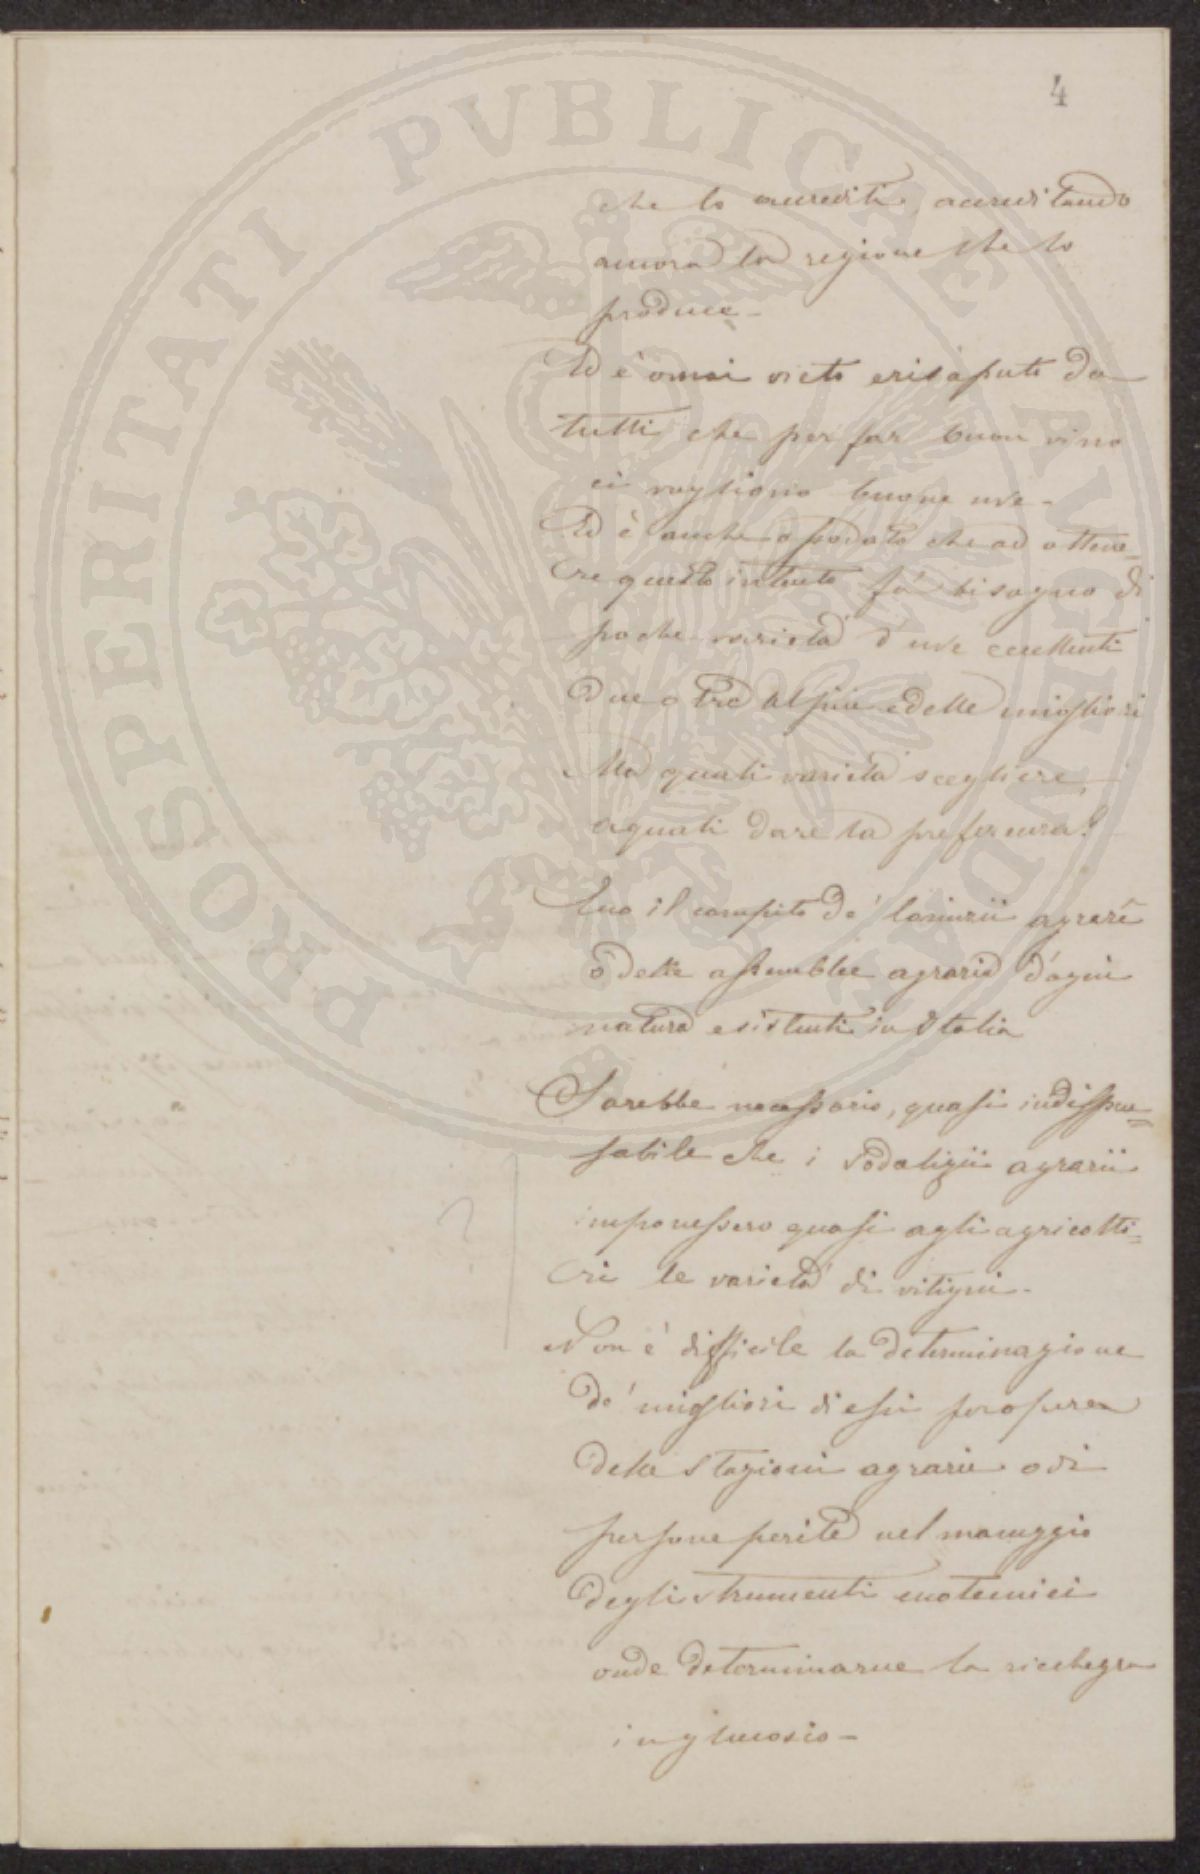 4
che lo accrediti, accreditando
ancora la regione che lo
produce -
Ed è omai vieto e risaputo da
tutti che per far buon vino
ci vogliono buone uve -
Ed è anche assodato che ad ottene=
re questo intento fà bisogno di
poche varietà d'uve eccellenti
due o tre al più e delle migliori
Ma quali varietà scegliere,
a quali dare la preferenza?
Ecco il compito de' Comizii agrarî
o delle assemblee agrarie d'ogni
natura esistenti in Italia
Sarebbe necessario, quasi indispen=
sabile che i sodalizii agrarii
imponessero quasi agli agricolto=
ri le varietà di vitigni -
?
Non è difficile la determinazione
de' migliori di essi per opera
delle stazioni agrarie o di
persone perite nel maneggio
degli strumenti enotecnici
onde determinarne la ricchezza
in glucosio -
PROSPERITATI PVBLICAE AVGENDAE